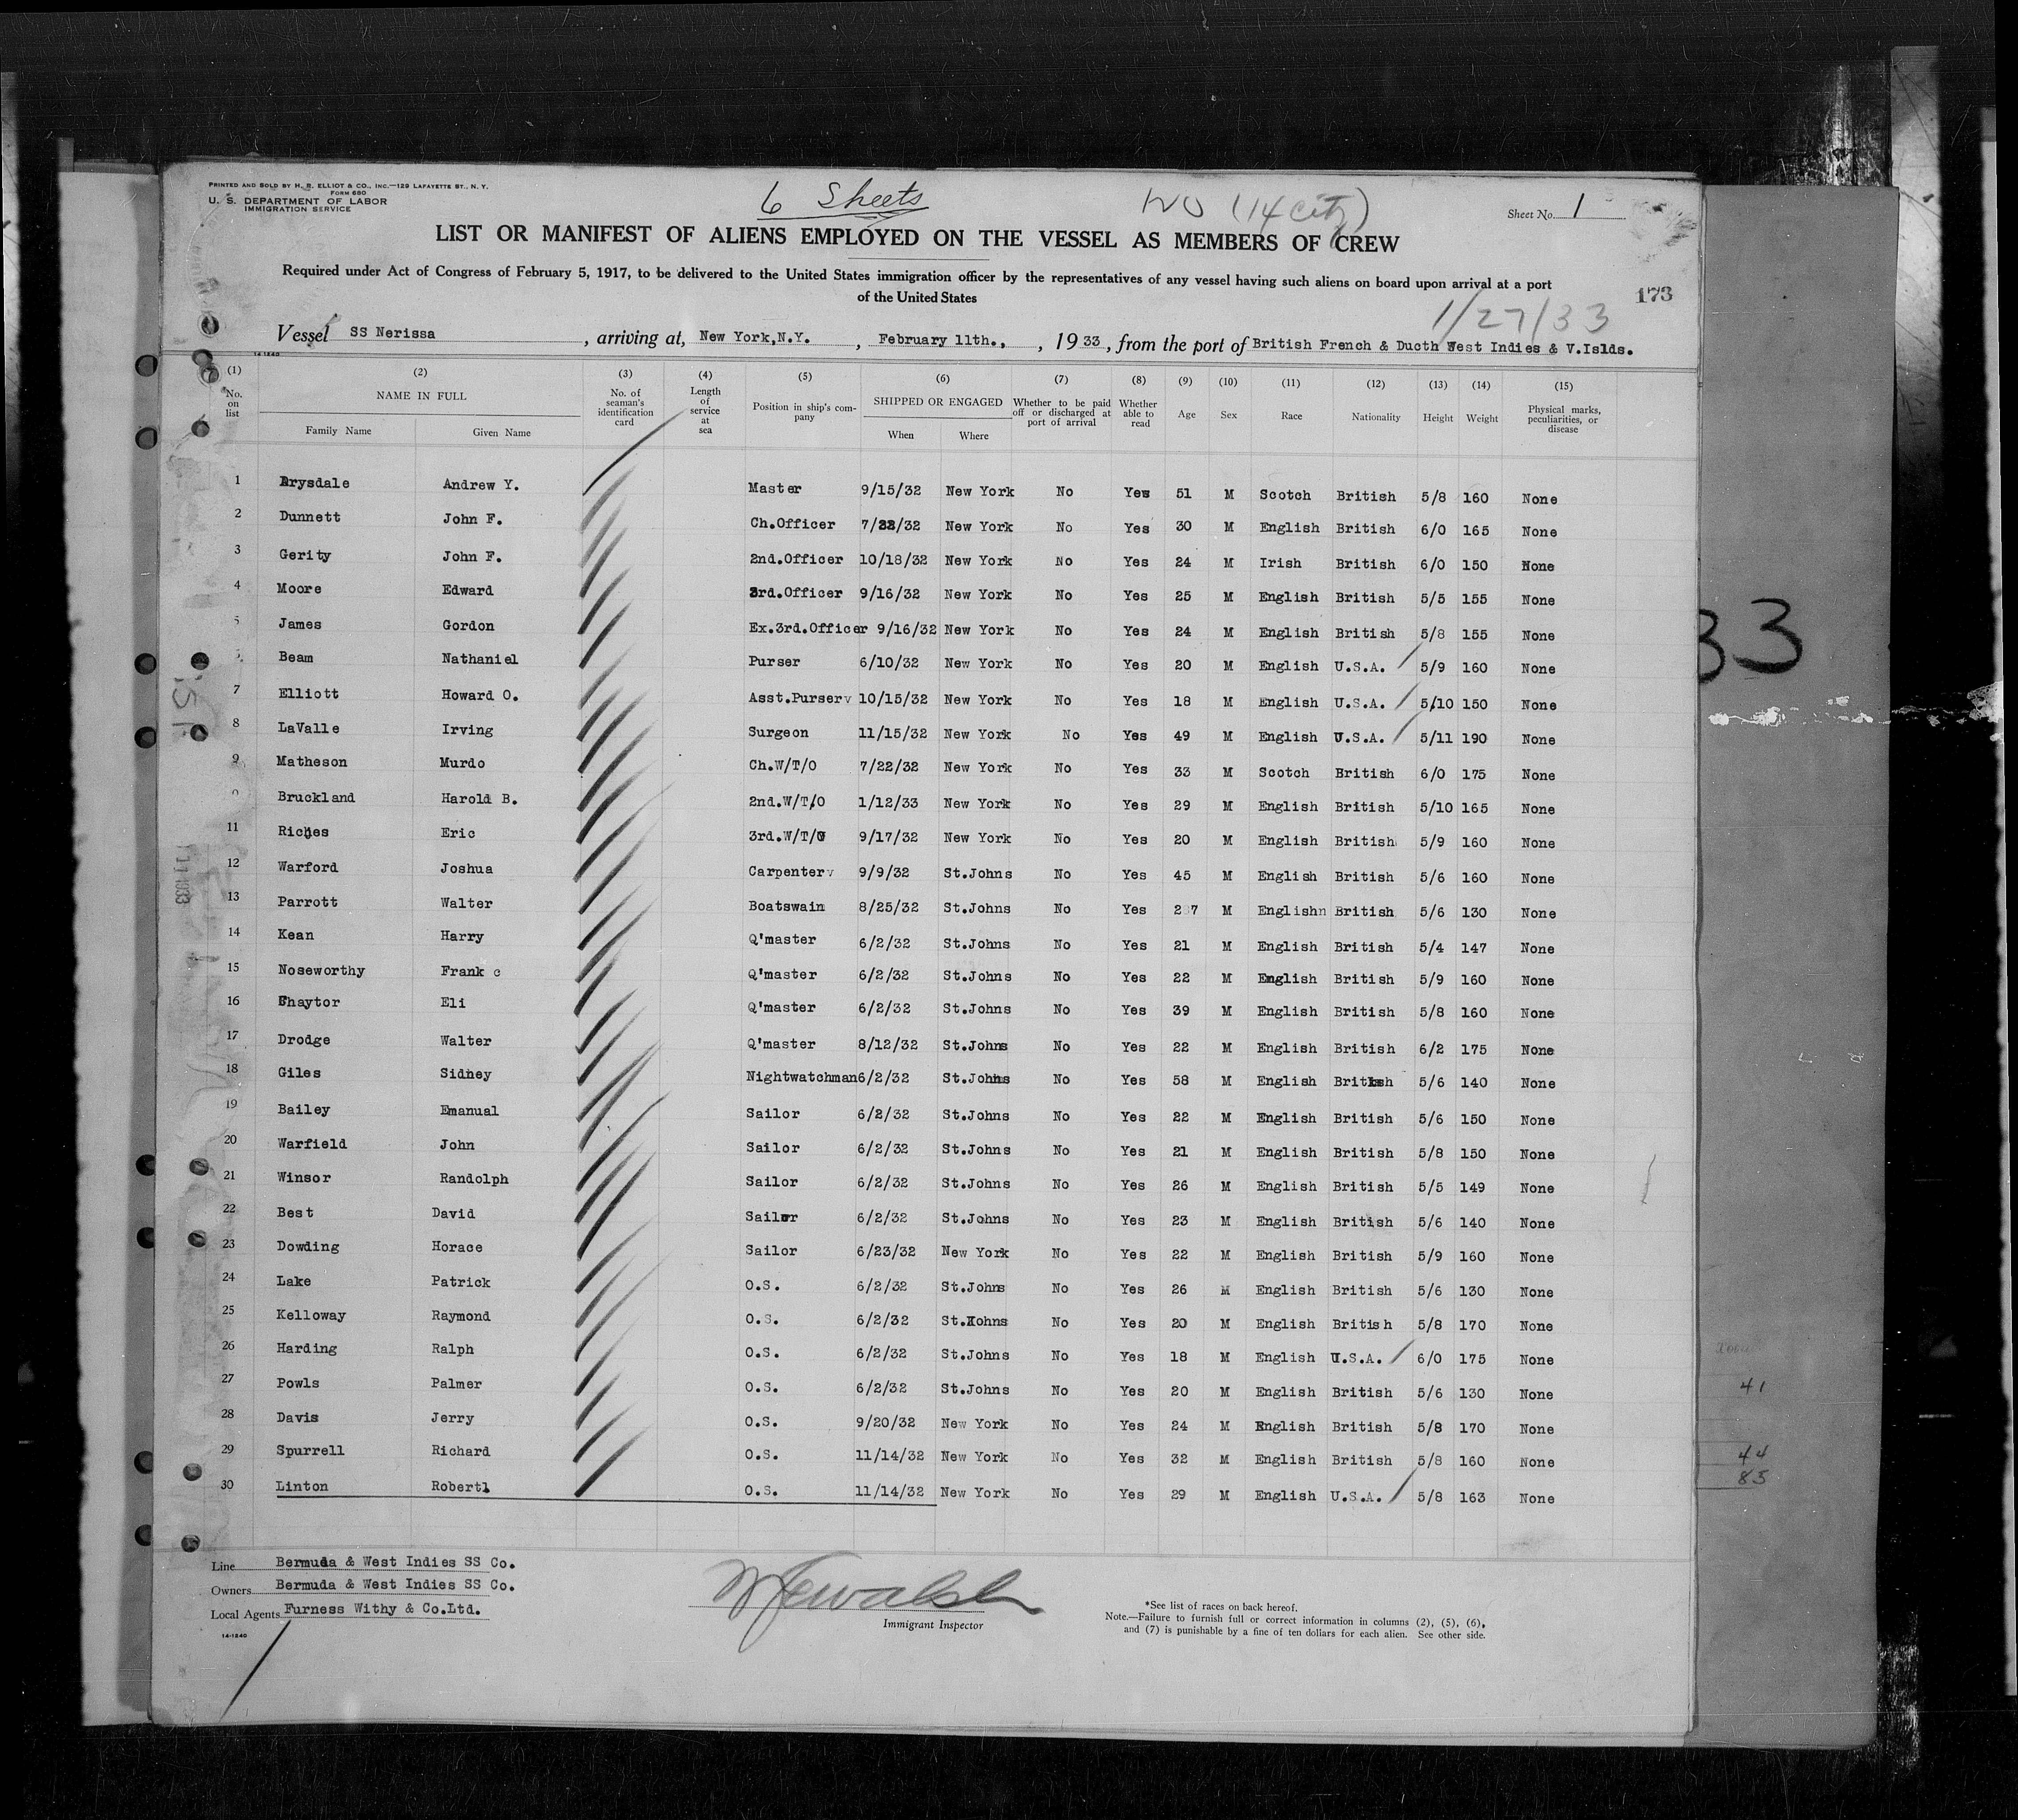 PRINTED AND SOLD BY H. B. ELLIOT & CO., INC.—129 LAFAYETTE ST., N. Y.
FORM 680
U. S. DEPARTMENT OF LABOR
IMMIGRATION SERVICE
6 Sheets
(14 city)
Sheet No. 1
LIST OR MANIFEST OF ALIENS EMPLOYED ON THE VESSEL AS MEMBERS OF CREW
Required under Act of Congress of February 5, 1917, to be delivered to the United States immigration officer by the representatives of any vessel having such aliens on board upon arrival at a port
of the United States
173
1/27/33
Vessel SS Nerissa, arriving at, New York,N.Y., February 11th., , 1933, from the port of British French & Ducth West Indies & V.Islds.
14-1240
(1) No. on list (2) NAME IN FULL Family Name Given Name (3) No. of seaman's identification card (4) Length of service at sea (5) Position in ship's company (6) SHIPPED OR ENGAGED When Where (7) Whether to be paid off or discharged at port of arrival (8) Whether able to read (9) Age (10) Sex (11) Race (12) Nationality (13) Height (14) Weight (15) Physical marks, peculiarities, or disease
1 Drysdale Andrew Y. Master 9/15/32 New York No Yes 51 M Scotch British 5/8 160 None
2 Dunnett John F. Ch.Officer 7/22/32 New York No Yes 30 M English British 6/0 165 None
3 Gerity John F. 2nd.Officer 10/18/32 New York No Yes 24 M Irish British 6/0 150 None
4 Moore Edward 3rd.Officer 9/16/32 New York No Yes 25 M English British 5/5 155 None
5 James Gordon Ex.3rd.Officer 9/16/32 New York No Yes 24 M English British 5/8 155 None
Beam Nathaniel Purser 6/10/32 New York No Yes 20 M English U.S.A. 5/9 160 None
7 Elliott Howard O. Asst.Purser 10/15/32 New York No Yes 18 M English U.S.A. 5/10 150 None
8 LaValle Irving Surgeon 11/15/32 New York No Yes 49 M English U.S.A. 5/11 190 None
9 Matheson Murdo Ch.W/T/O 7/22/32 New York No Yes 33 M Scotch British 6/0 175 None
0 Bruckland Harold B. 2nd.W/T/O 1/12/33 New York No Yes 29 M English British 5/10 165 None
11 Riches Eric 3rd.W/T/O 9/17/32 New York No Yes 20 M English British 5/9 160 None
12 Warford Joshua Carpenter 9/9/32 St.Johns No Yes 45 M English British 5/6 160 None
13 Parrott Walter Boatswain 8/25/32 St.Johns No Yes 27 M Englishn British 5/6 130 None
14 Kean Harry Q'master 6/2/32 St.Johns No Yes 21 M English British 5/4 147 None
15 Noseworthy Frank c Q'master 6/2/32 St.Johns No Yes 22 M English British 5/9 160 None
16 Shaytor Eli Q'master 6/2/32 St.Johns No Yes 39 M English British 5/8 160 None
17 Drodge Walter Q'master 8/12/32 St.Johns No Yes 22 M English British 6/2 175 None
18 Giles Sidney Nightwatchman 6/2/32 St.Johns No Yes 58 M English British 5/6 140 None
19 Bailey Emanual Sailor 6/2/32 St.Johns No Yes 22 M English British 5/6 150 None
20 Warfield John Sailor 6/2/32 St.Johns No Yes 21 M English British 5/8 150 None
21 Winsor Randolph Sailor 6/2/32 St.Johns No Yes 26 M English British 5/5 149 None
22 Best David Sailor 6/2/32 St.Johns No Yes 23 M English British 5/6 140 None
23 Dowding Horace Sailor 6/23/32 New York No Yes 22 M English British 5/9 160 None
24 Lake Patrick O.S. 6/2/32 St.Johns No Yes 26 M English British 5/6 130 None
25 Kelloway Raymond O.S. 6/2/32 St.Johns No Yes 20 M English British 5/8 170 None
26 Harding Ralph O.S. 6/2/32 St.Johns No Yes 18 M English U.S.A. 6/0 175 None
27 Powls Palmer O.S. 6/2/32 St.Johns No Yes 20 M English British 5/6 130 None
28 Davis Jerry O.S. 9/20/32 New York No Yes 24 M English British 5/8 170 None
29 Spurrell Richard O.S. 11/14/32 New York No Yes 32 M English British 5/8 160 None
30 Linton Robert O.S. 11/14/32 New York No Yes 29 M English U.S.A. 5/8 163 None
33
41
44
85
Line Bermuda & West Indies SS Co.
Owners Bermuda & West Indies SS Co.
Local Agents Furness Withy & Co.Ltd.
14-1240
Immigrant Inspector
*See list of races on back hereof.
Note.—Failure to furnish full or correct information in columns (2), (5), (6),
and (7) is punishable by a fine of ten dollars for each alien. See other side.